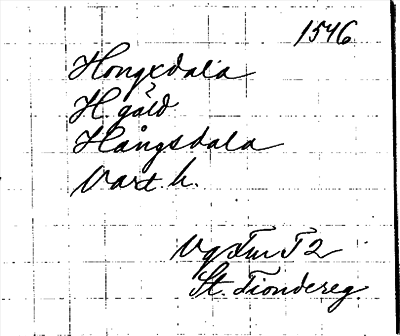 1546
Hongxdala
H. gäld
Hångsdala
Vart. h.
Vg Tiu T2
St. Tiondereg.